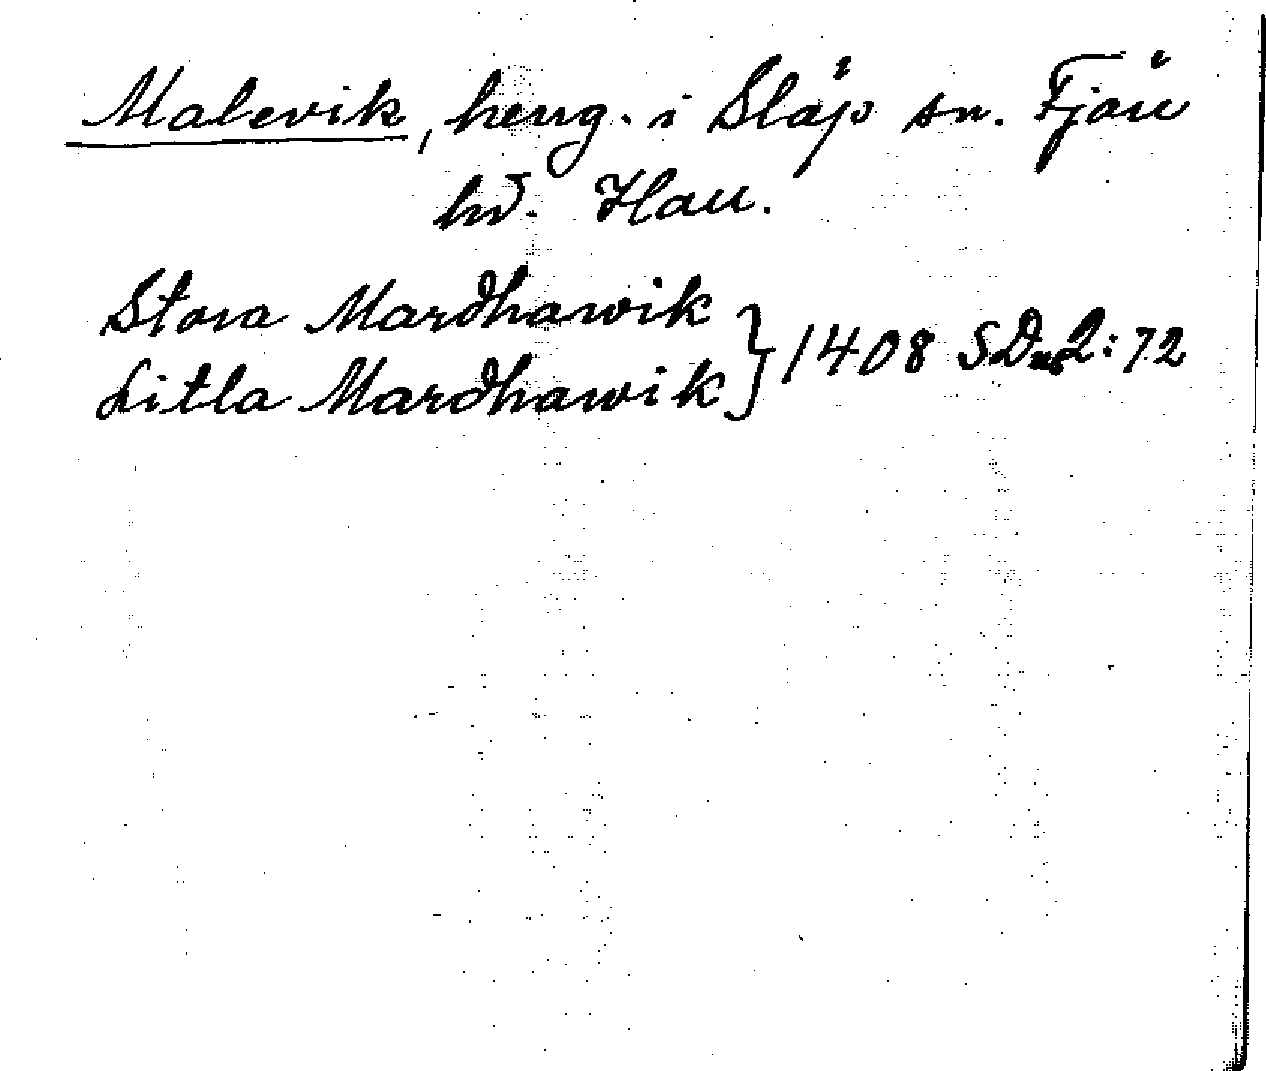 Malevik, hemg. i Släp sn. Fjäre
hd. Hall.
Stora Mardhawik } 1408 SDns 2:72
Litla Mardhawik